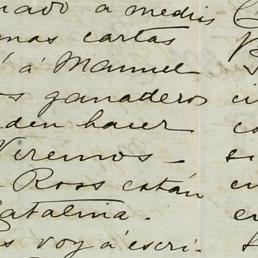 nado a medris
mas cartas
á Manuel
s ganaderos
den hacer
Veremos -
Ross están
Catalina.
s voy á escri-